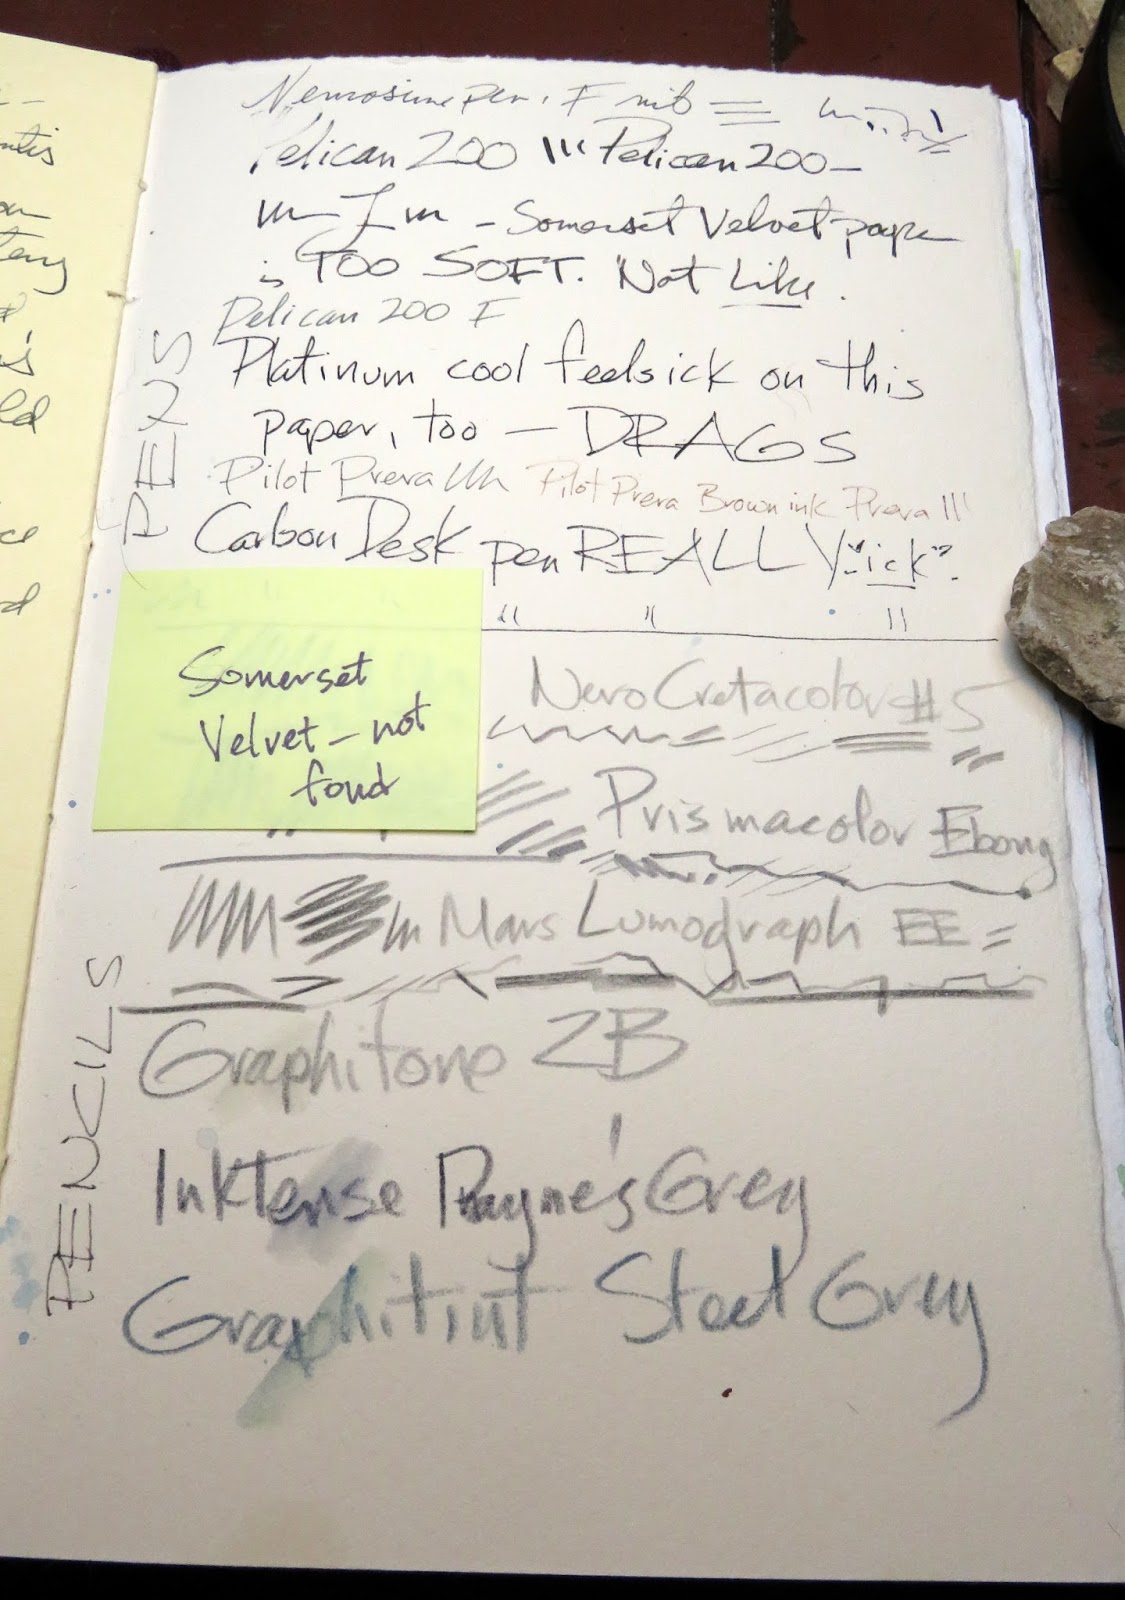 Nemosine pen, F nib
Pelican 200 Pelican 200-
- Somerset Velvet paper
is TOO SOFT. Not Like.
Pelican 200 F
Platinum cool feels ick on this
paper, too — DRAGS
Pilot Prera Pilot Prera Brown ink Prera
Carbon Desk pen REALLY "ick".
PENS
Somerset
Velvet - not
fond
Nero Cretacolor #5
Prismacolor Ebony
Mars Lumograph EE
Graphitone 2B
Inktense Payne's Grey
Graphitint Steel Grey
PENCILS